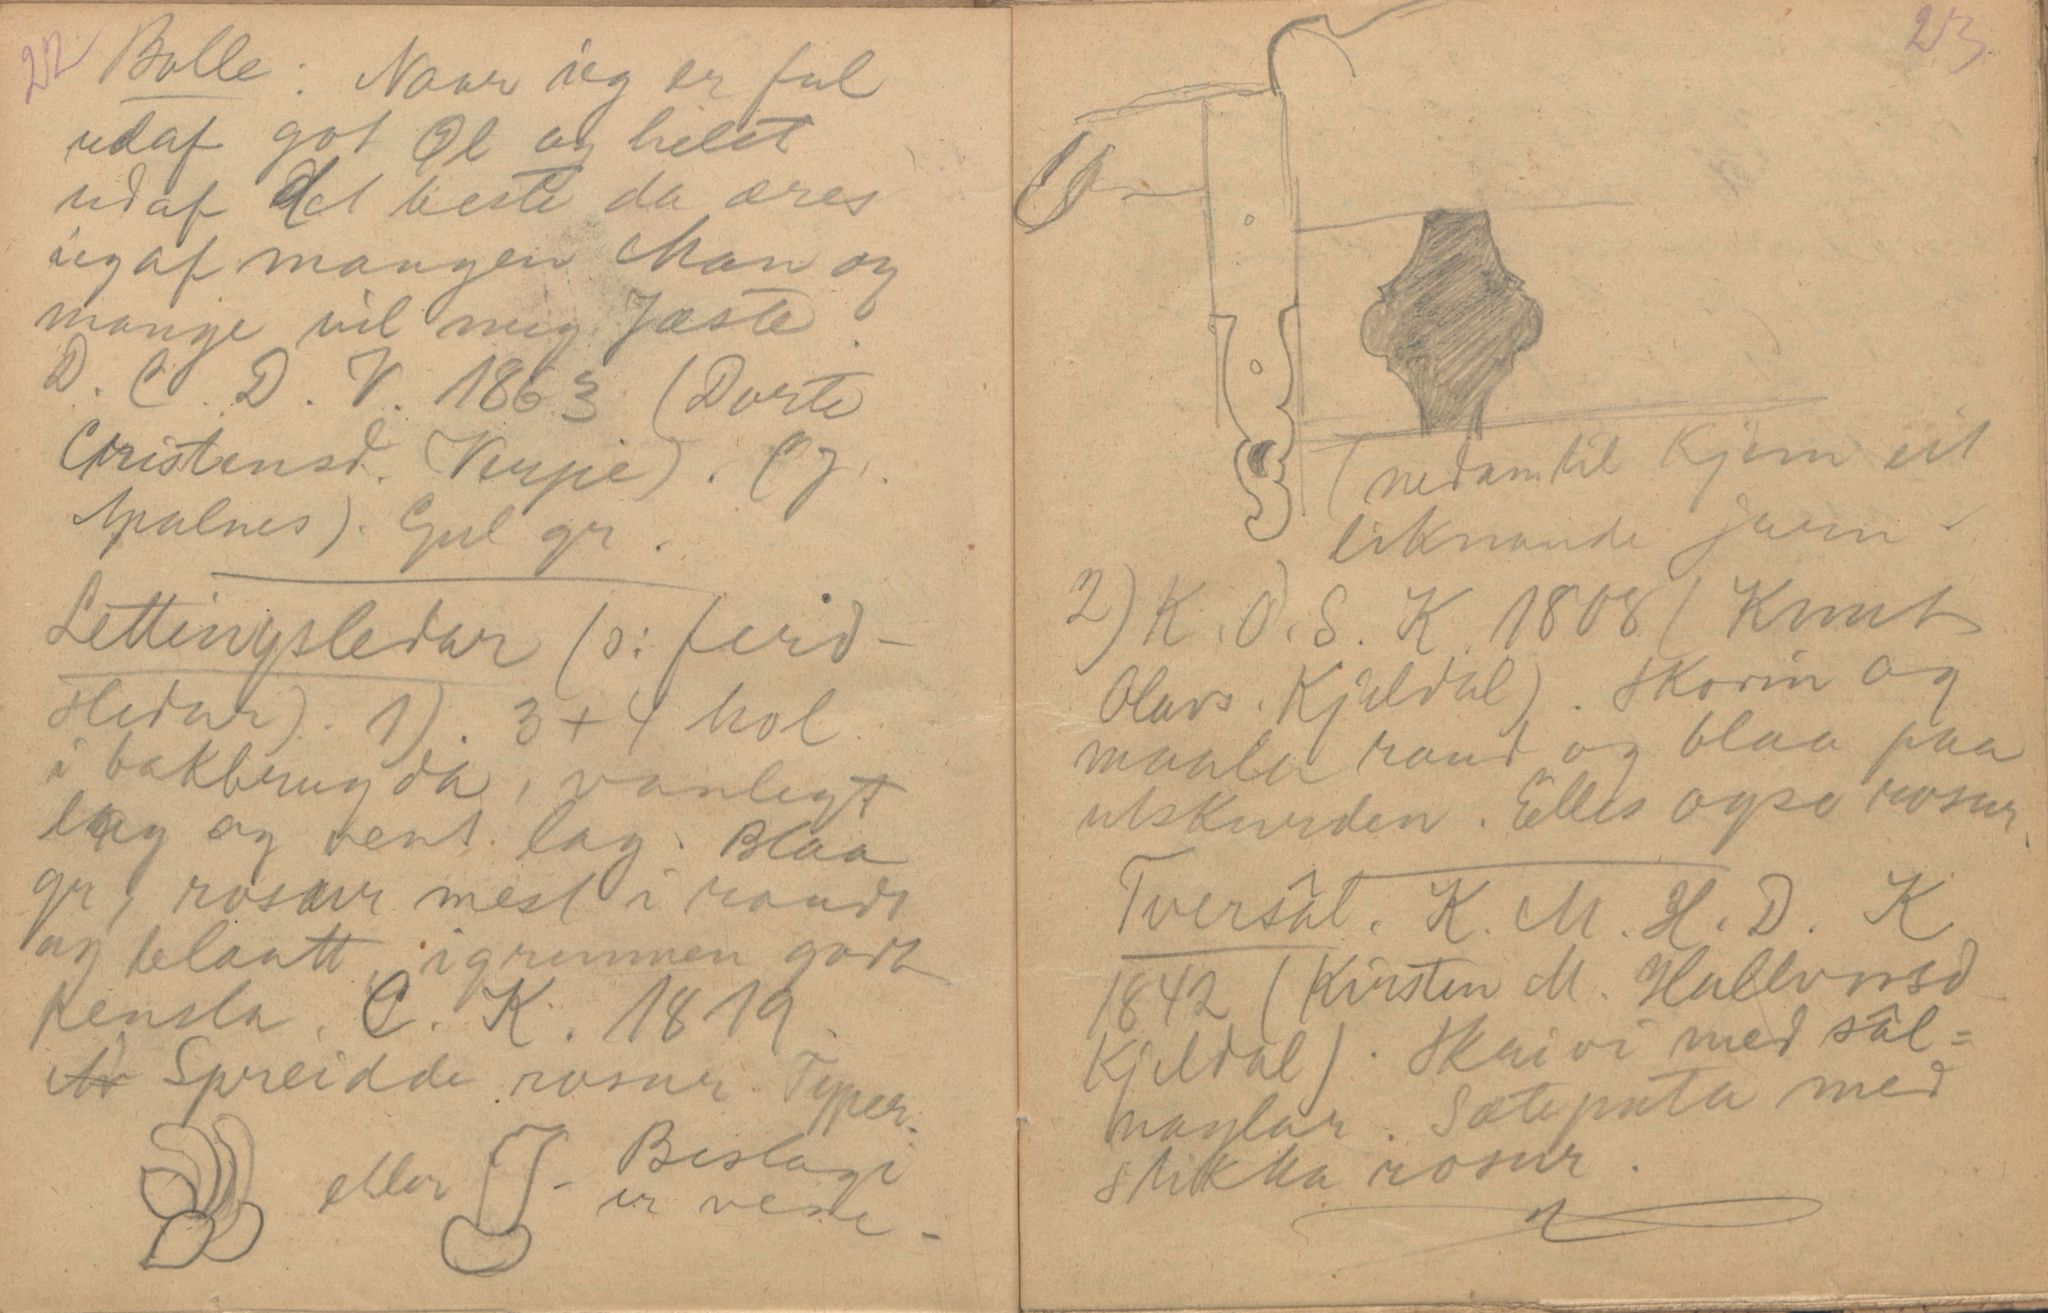 22
Bolle: Naar ieg er ful
udaf got Øl og helst
udaf det beste da æres
ieg af mangen Man og
mange vil mig Jæste
D. C. D. V. 1863 (Dorte
Christensd. Verpe). (J.
Apalnes). Gul gr.
Lettingsledar (ɔ: ferd-
sledar). 1). 3+4 hol
i bakbrugda, vanlegt
lag og vent lag. Blaa
gr, rosur mest i raudt
og blaatt, igrunnen godt
pensla. C. K. 1819.
Spreidde rosur. Typer.
eller - Beslagi
er vene -
23
(nedantil kjem eit
liknande jarn -
2) K. O. S. K. 1808 (Knut
Olavs. Kjeldal). Skorin og
maala raud og blaa paa
utskurden. Elles ogso rosur.
Tversâl. K. M. H. D. K
1842 (Kirsten M. Hallvorsd
Kjeldal). Skaivi med sâl=
naglar. Sæteputa med
stikka rosur.